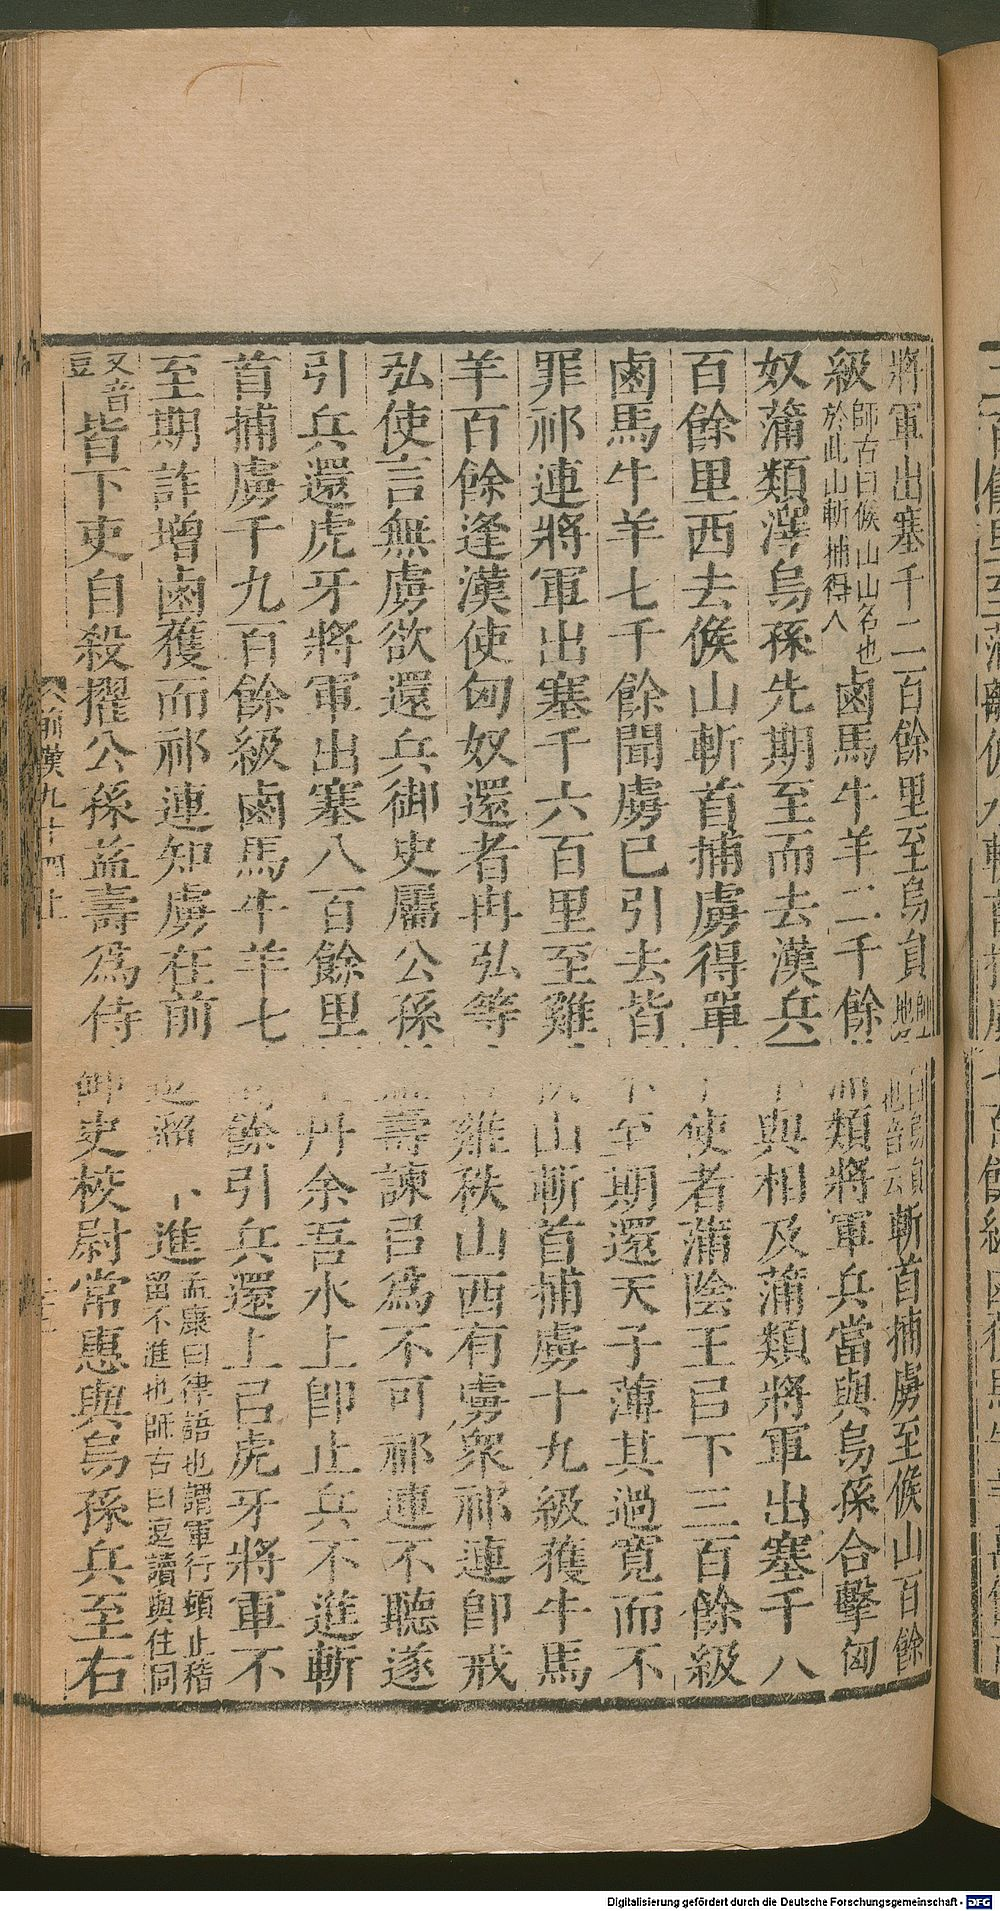 將軍出塞千二百餘里至烏員師古曰烏員地名也音云斬首捕虜至候山百餘
級師古曰候山山名也於此山斬捕得人鹵馬牛羊二千餘蒲類將軍兵當與烏孫合擊匈
奴蒲類澤烏孫先期至而去漢兵不與相及蒲類將軍出塞千八
百餘里西去候山斬首捕虜得單于使者蒲陰王㠯下三百餘級
鹵馬牛羊七千餘聞虜已引去皆不至期還天子薄其過寬而不
罪祁連將軍出塞千六百里至雞秩山斬首捕虜十九級獲牛馬
羊百餘逢漢使匈奴還者冉弘等言雞秩山西有虜衆祁連即戒
弘使言無虜欲還兵御史屬公孫益壽諫㠯爲不可祁連不聽遂
引兵還虎牙將軍出塞八百餘里至丹余吾水上即止兵不進斬
首捕虜千九百餘級鹵馬牛羊七萬餘引兵還上㠯虎牙將軍不
至期詐增鹵獲而祁連知虜在前逗遛不進孟康曰律語也謂軍行頓止稽留不進也師古曰逗讀與住同
又音豆皆下吏自殺擢公孫益壽爲侍御史校尉常惠與烏孫兵至右
前漢九十四上
Digitalisierung gefördert durch die Deutsche Forschungsgemeinschaft - DFG